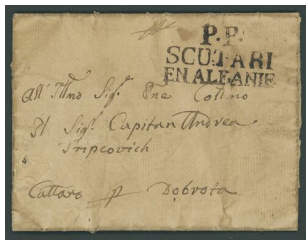 P.P.
SCUTARI
EN ALBANIE
All' Illmo Sigr. Pne Colmo
Il Sigr. Capitan Andrea
Tripcovich
Cattaro p Dobrota